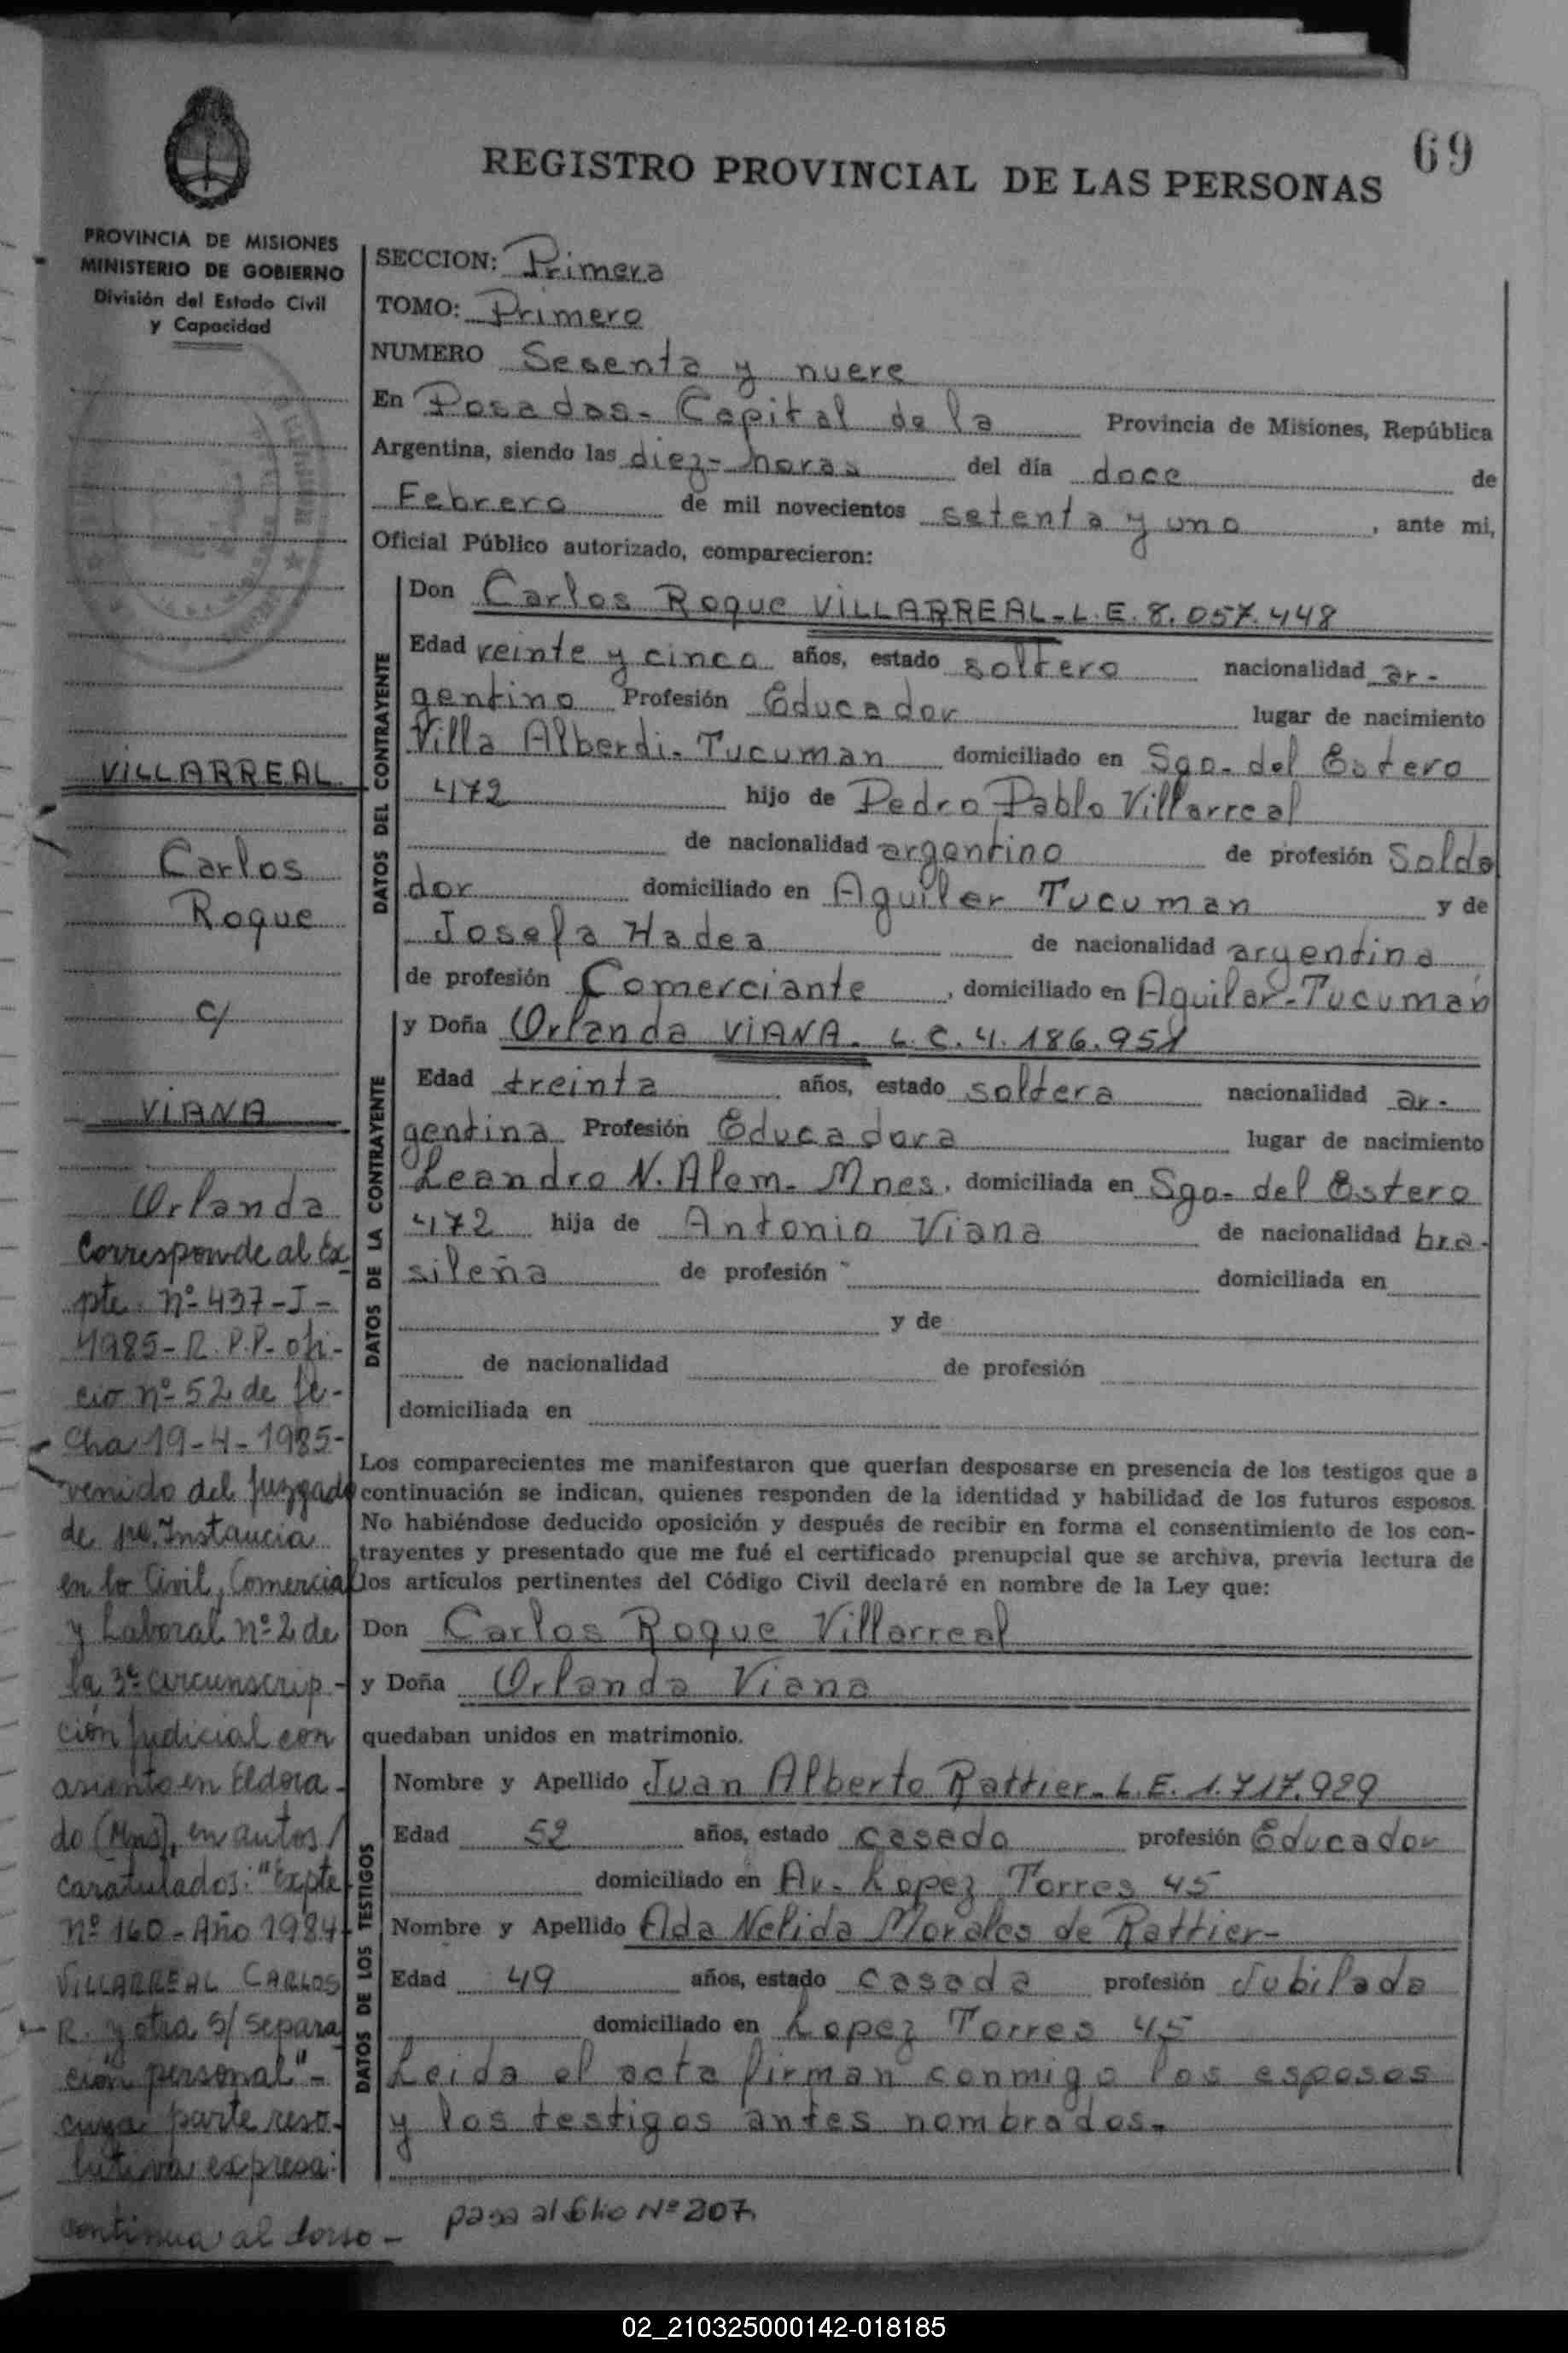 69
REGISTRO PROVINCIAL DE LAS PERSONAS
PROVINCIA DE MISIONES
MINISTERIO DE GOBIERNO
División del Estado Civil
y Capacidad
VILLARREAL
Carlos
Roque
c/
VIANA
Orlanda
Corresponde al Ex
pte. nº 437-I-
1985-R.P.P. ofi-
cio nº 52 de fe-
cha 19-4-1985-
venido del Juzgado
de 1ra. Instancia
en lo Civil, Comercial
y Laboral nº 2 de
la 3ª circunscrip-
ción Judicial con
asiento en Eldora-
do (Mnes), en autos
caratulados: "Expte
Nº 160-Año 1984
VILLARREAL CARLOS
R. y otra S/ Separa
ción personal"-
cuya parte reso-
lutiva expresa:
continua al dorso-
SECCION: Primera
TOMO: Primero
NUMERO Sesenta y nueve
En Posadas- Capital de la Provincia de Misiones, República
Argentina, siendo las diez- horas del día doce de
Febrero de mil novecientos setenta y uno, ante mi,
Oficial Público autorizado, comparecieron:
DATOS DEL CONTRAYENTE
Don Carlos Roque VILLARREAL-L.E. 8.057.448
Edad veinte y cinco años, estado soltero nacionalidad ar-
gentino Profesión Educador lugar de nacimiento
Villa Alberdi-Tucuman domiciliado en Sgo- del Estero
472 hijo de Pedro Pablo Villarreal
de nacionalidad argentino de profesión Solda
dor domiciliado en Aguilar Tucuman y de
Josefa Hadea de nacionalidad argentina
de profesión Comerciante, domiciliado en Aguilar-Tucumán
DATOS DE LA CONTRAYENTE
y Doña Orlanda VIANA. L.C. 4.186.958
Edad treinta años, estado soltera nacionalidad ar-
gentina Profesión Educadora lugar de nacimiento
Leandro N. Alem- Mnes. domiciliada en Sgo- del Estero
472 hija de Antonio Viana de nacionalidad bra-
sileña de profesión domiciliada en
y de
de nacionalidad de profesión
domiciliada en
Los comparecientes me manifestaron que querían desposarse en presencia de los testigos que a
continuación se indican, quienes responden de la identidad y habilidad de los futuros esposos.
No habiéndose deducido oposición y después de recibir en forma el consentimiento de los con-
trayentes y presentado que me fué el certificado prenupcial que se archiva, previa lectura de
los artículos pertinentes del Código Civil declaré en nombre de la Ley que:
Don Carlos Roque Villarreal
y Doña Orlanda Viana
quedaban unidos en matrimonio.
DATOS DE LOS TESTIGOS
Nombre y Apellido Juan Alberto Rattier-L.E. 1.717.989
Edad 52 años, estado casado profesión Educador
domiciliado en Av- Lopez Torres 45
Nombre y Apellido Ada Nelida Morales de Rattier-
Edad 49 años, estado casada profesión Jubilada
domiciliado en Lopez Torres 45
Leida el acta firman conmigo los esposos
y los testigos antes nombrados-
pasa al folio Nº 207
02_210325000142-018185